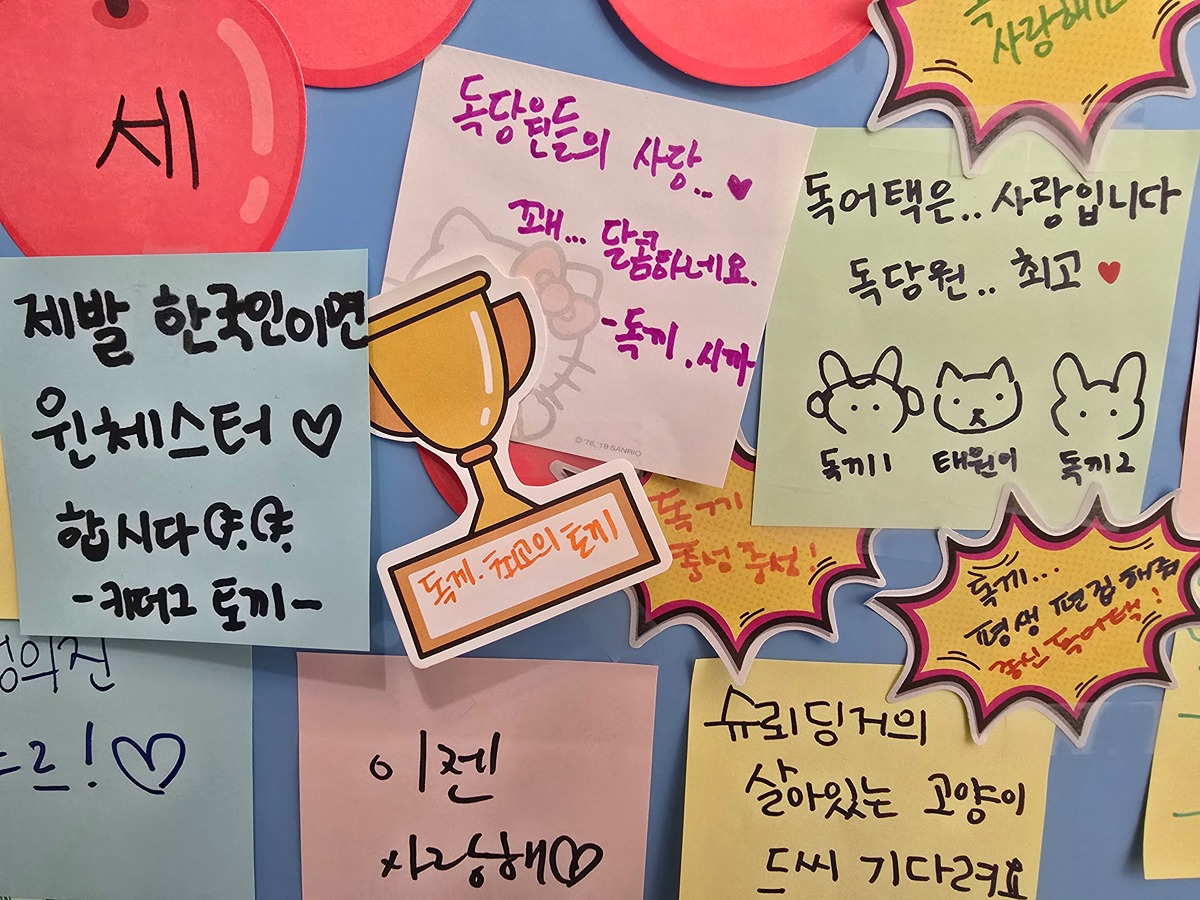 세
사랑해
독당원들의 사랑..♥
꽤... 달콤하네요.
-독끼.시까-
©'76,'19 SANRIO
독어택은.. 사랑입니다
독당원.. 최고♥
독끼1 태원이 독끼2
제발 한국인이면
윈체스터♡
합시다
-키더그 토끼-
독끼. 최고의 토끼
독끼
충성충성!
독끼...
평생 편집해줘
종신 독어택!
의진
르!♡
이젠
사랑해♡
슈뢰딩거의
살아있는 고양이
드씨 기다려요